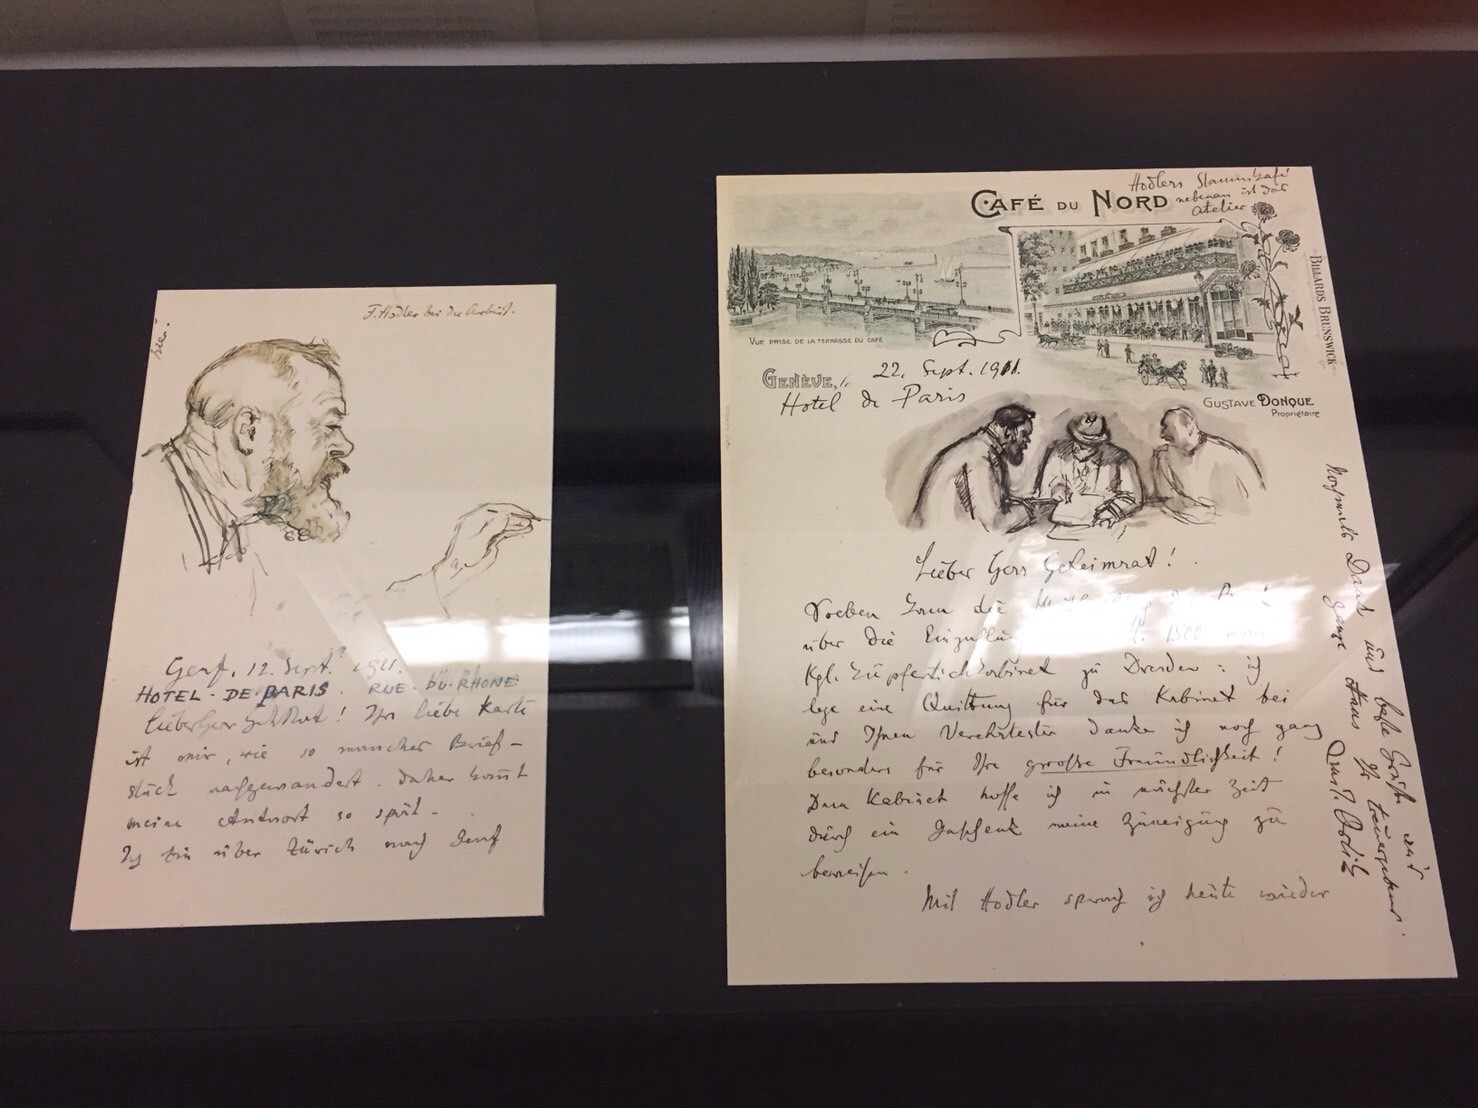 F. Hodler bei der Arbeit.
Genf, 12. Sept. 1911.
HOTEL · DE PARIS . RUE · DU · RHONE
Lieber Herr ! Ihre liebe Karte
ist mir, wie so mancher Brief-
stück nachgewandert. daher kommt
meine Antwort so spät -
Ich bin über Zürich nach Genf
CAFÉ DU NORD
Hodlers Stammkafé
nebenan ist das
Atelier
BILLARDS BRUNSWICK
VUE PRISE DE LA TERRASSE DU CAFÉ
GENÈVE, le 22. Sept. 1911.
Hotel de Paris
GUSTAVE DONQUE
Propriétaire
Lieber Herr Geheimrat !
Soeben kam die
über die Einzahlung M. 1500
Kgl. Kupferstichkabinet zu Dresden : ich
lege eine Quittung für das Kabinet bei
und Ihnen Verehrtester danke ich noch ganz
besonders für Ihre grosse Freundlichkeit !
Dem Kabinet hoffe ich in nächster Zeit
durch ein Geschenk meine Zuneigung zu
beweisen .
Mit Hodler sprach ich heute wieder
Nochmals Dank und beste Grüsse
Ihr treuergebener